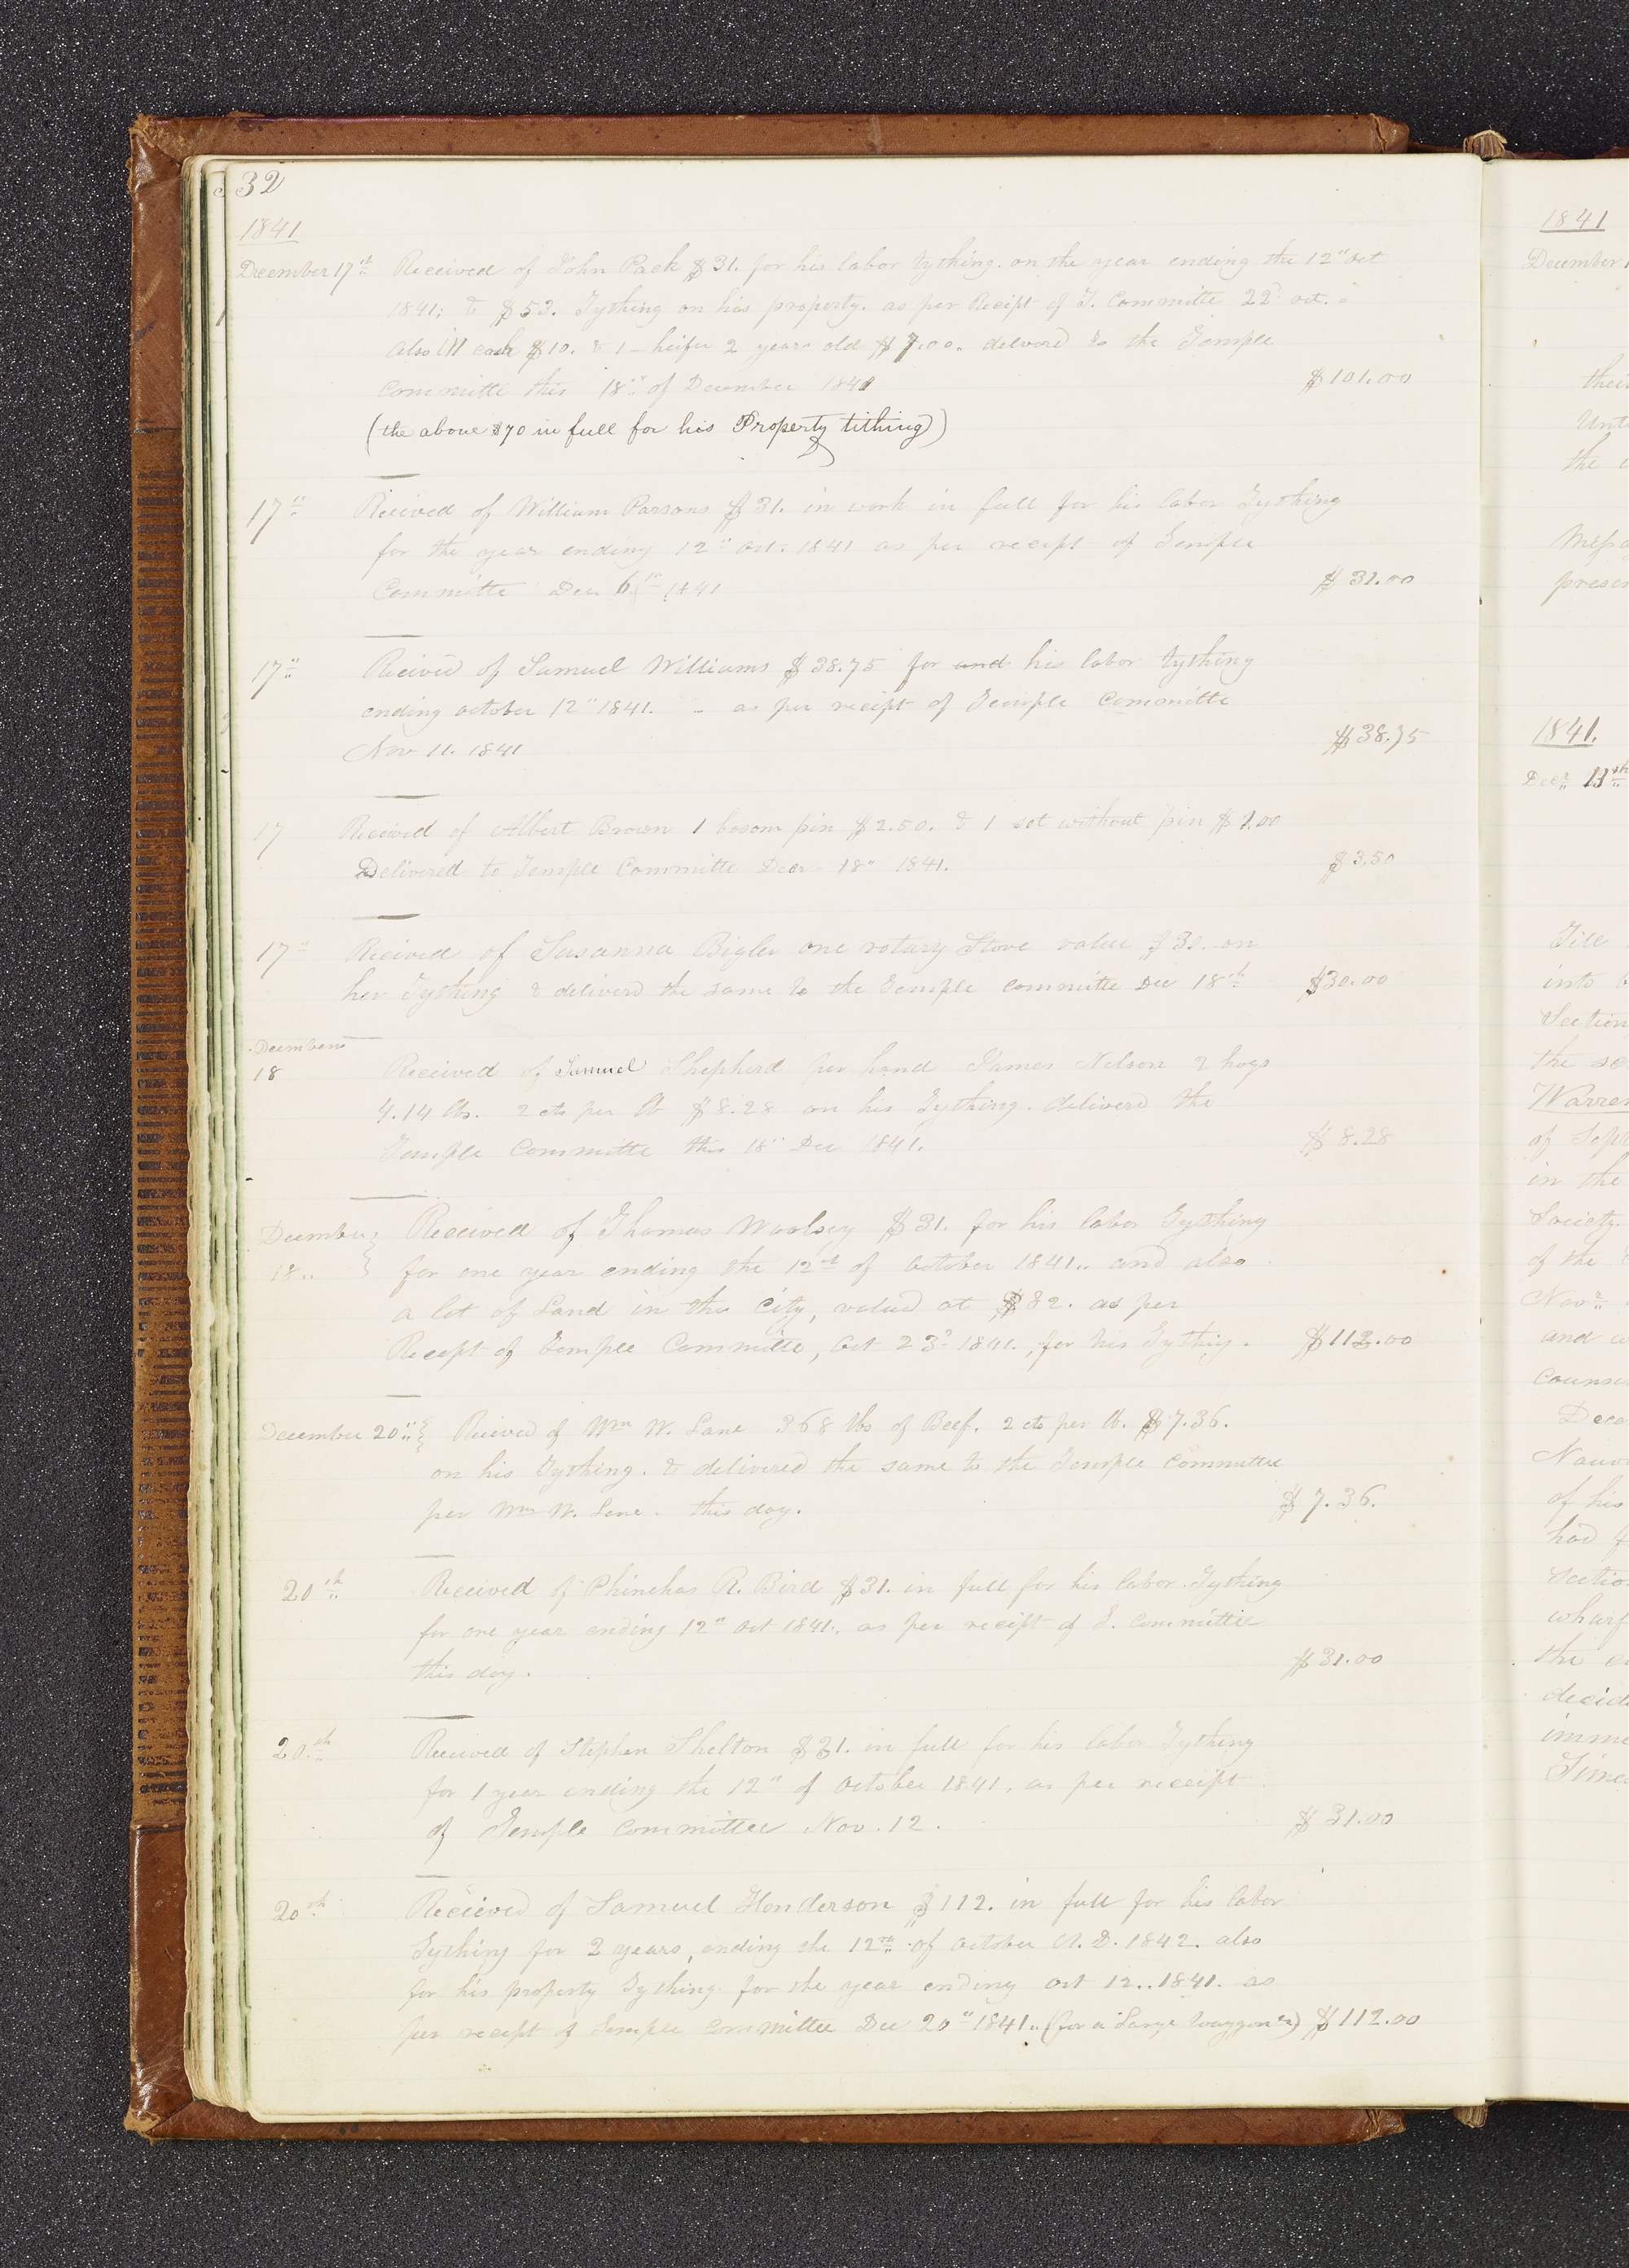 32
1841
December 17th Received of John Pack $31. for his labor tything. on the year ending the 12" oct
1841; & $53. Tything on his property. as per Receipt of T. Committe 22d oct. =
Also in cash $10. & 1 - heifer 2 years old $7.00. deliverd to the Temple
Committe this 18" of December 1841 $101.00
(the above $70 in full for his Property tithing)
17" Received of William Parsons $31. in work in full for his labor Tything
for the year ending 12" oct. 1841 as per receipt of Temple
Committe Dec 6th 1841 $31.00
17" Reeived of Samuel Williams $38.75 for and his labor tything
ending october 12" 1841. " as per receipt of Temple Committe
Nov 11. 1841 $38.75
17 Received of Albert Brown 1 bosom pin $2.50. & 1 set without pin $1.00
Delivered to Temple Committe Decr - 18" 1841. $3.50
17" Reeived of Susanna Bigler one rotary Stove value $30. on
her Tything & deliverd the same to the Temple committe Dec 18th $30.00
December
18 Received of Samuel Shepherd per hand James Nelson 2 hogs
4.14 lbs. 2 cts per lb $8.28 on his Tything. deliverd the
Temple Committe this 18" Dec 1841. $8.28
December } Received of Thomas Woolsey $31. for his labor Tything
18.. } for one year ending the 12th of October 1841.. and also
a lot of Land in this City, valued at $82. as per
Receipt of Temple Committe, Oct 23d 1841. for his Tything. $113.00
December 20" } Reeived of Wm W. Lane 368 lbs of Beef. 2 cts per lb. $7.36.
on his Tything. & delivered the same to the Temple Committee
per Wm W. Lane. this day. $7.36.
20th Received of Phinehas R. Bird $31. in full for his labor Tything
for one year ending 12" Oct 1841. as per receipt of T. Committee
this day. $31.00
20th Received of Stephen Shelton $31. in full for his labor Tything
for 1 year ending the 12" of October 1841. as per receipt
of Temple Committee Nov. 12. $31.00
20th Received of Samuel Henderson $112. in full for his labor
Tything for 2 years, ending the 12th of October A.D. 1842. also
for his property Tything for the year ending oct 12.. 1841. as
per receipt of Temple Committee Dec 20" 1841.. (for a Large Waggon) $112.00
1841
December 1
their
Unt
the
presen
1841.
Decr 13th
Till
into
Section
the se
Warren
of Sept
in the
Society.
of the
Novr
and
Counse
Dece
Nauv
of his
had f
Sectio
wharf
the
decid
imme
Times